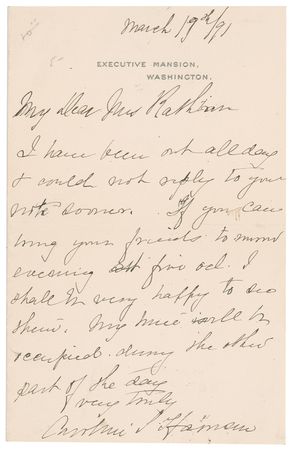 March 19th/91
EXECUTIVE MANSION,
WASHINGTON.
My dear Mrs Rathbun
I have been out all day
& could not reply to your
note sooner. If you can
bring your friends to morrow
evening at five ocl. I
shall be very happy to see
them. My time will be
occupied during the other
part of the day
very truly
Caroline S Harrison